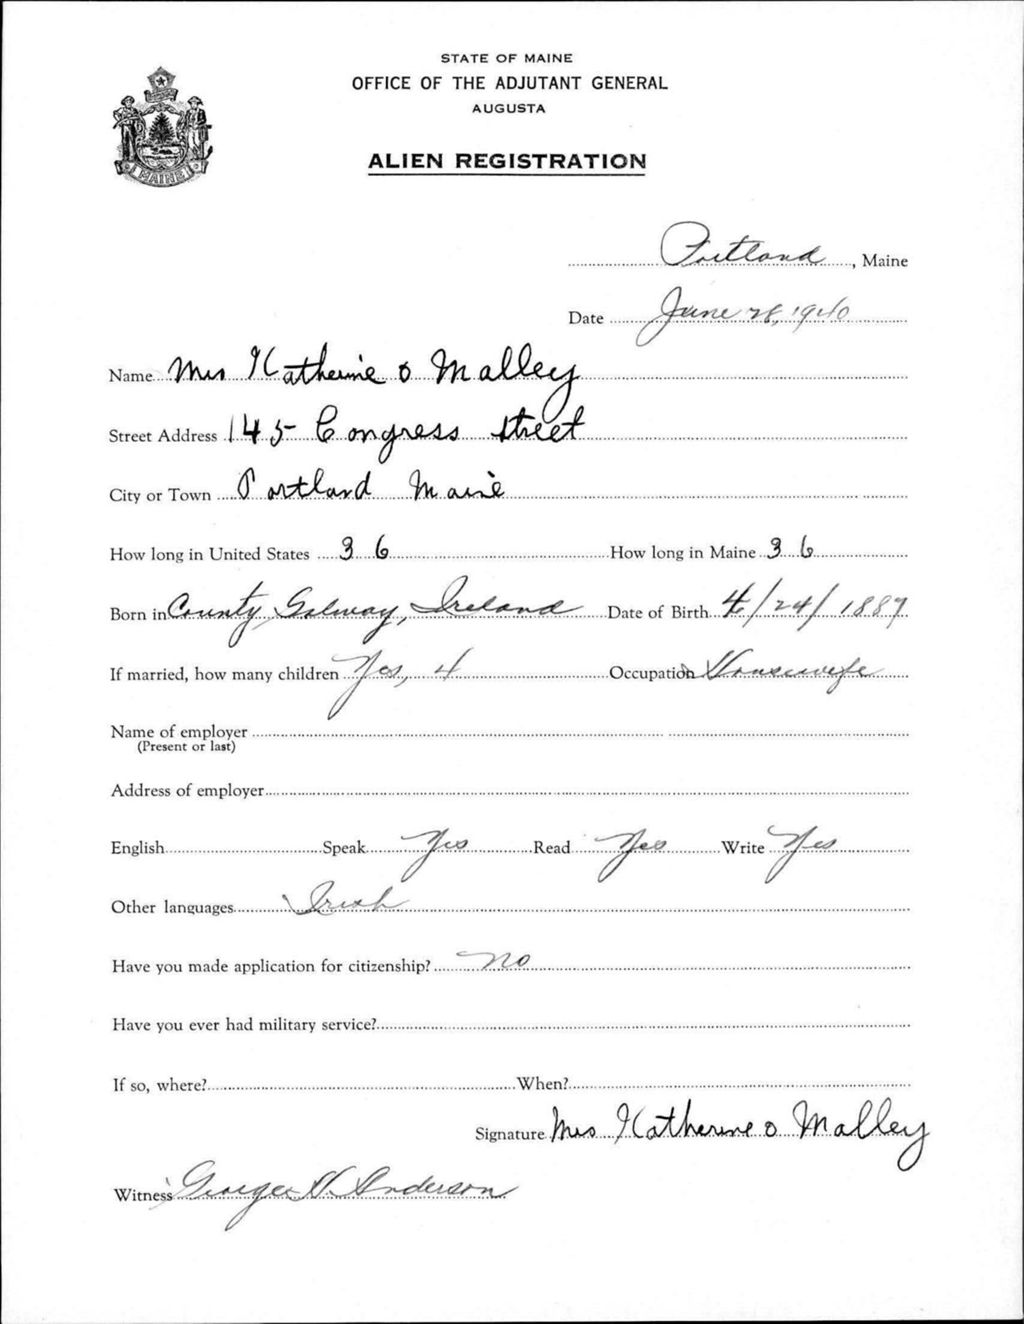 STATE OF MAINE
OFFICE OF THE ADJUTANT GENERAL
AUGUSTA
ALIEN REGISTRATION
MAINE
Portland, Maine
Date June 28, 1940
Name Mrs Katherine o Malley
Street Address 145 Congress street
City or Town Portland Maine
How long in United States 36 How long in Maine 36
Born in County Galway, Ireland Date of Birth 4/24/1887
If married, how many children Yes, 4 Occupation Housewife
Name of employer
(Present or last)
Address of employer
English Speak Yes Read Yes Write Yes
Other languages Irish
Have you made application for citizenship? No
Have you ever had military service?
If so, where? When?
Signature Mrs Katherine o Malley
Witness George Anderson